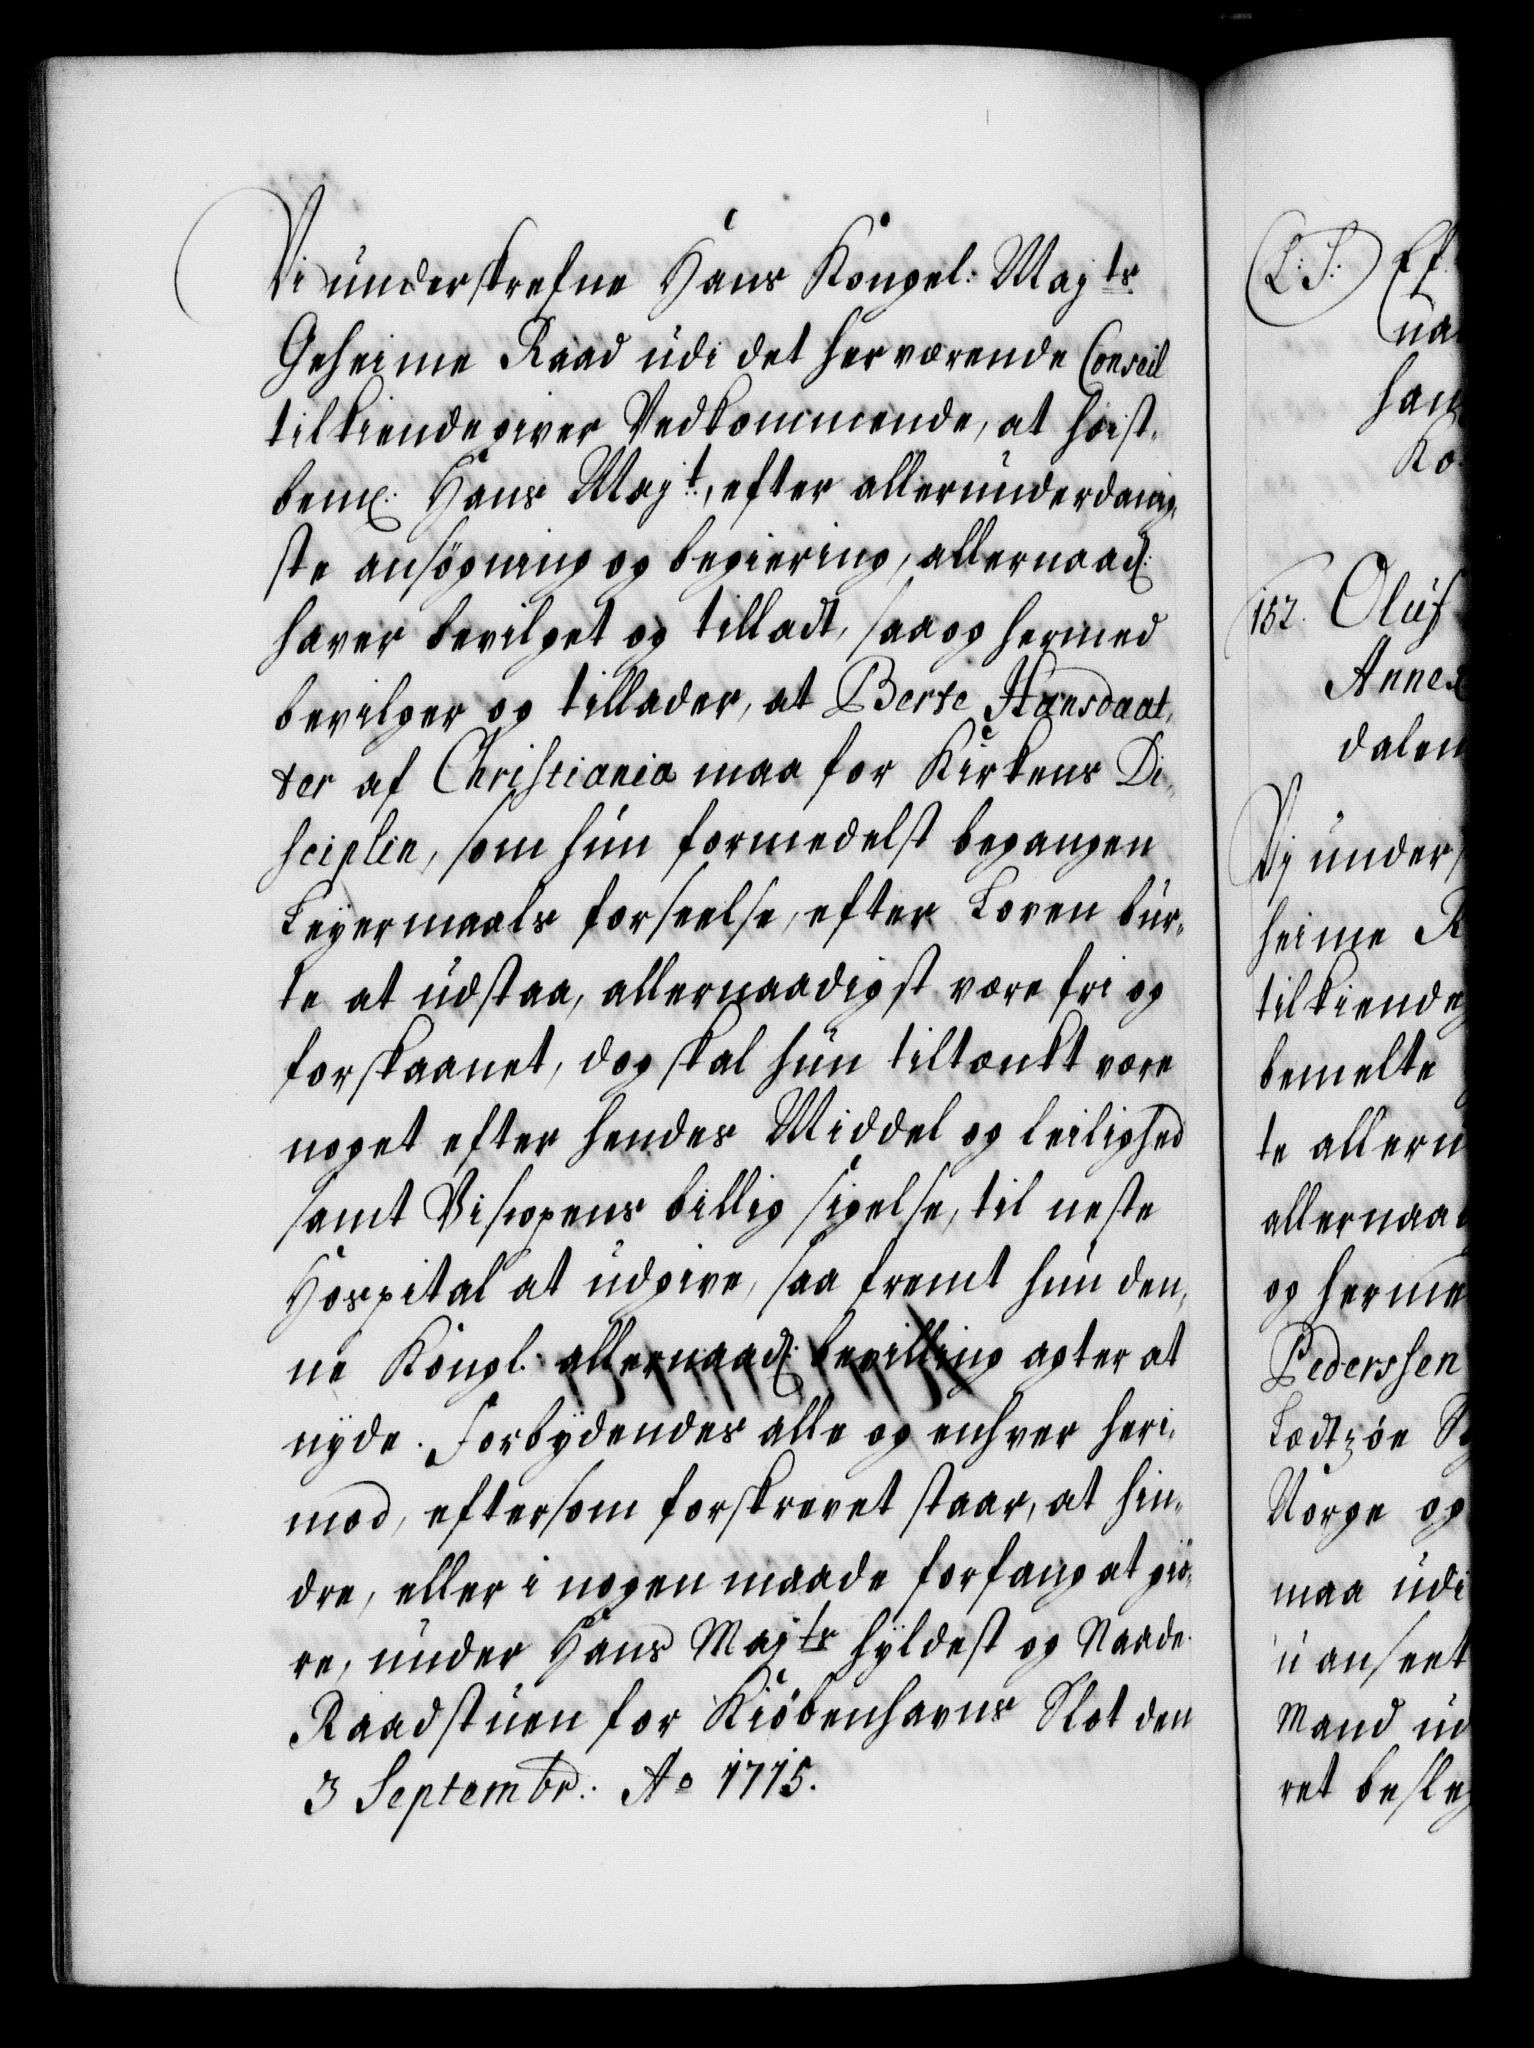 Vi underskrefne Hans Kongel: Majts
Geheime Raad udi det herværende Conseil
tilkiendegiver Vedkommende, at høist,
bemᵗᵉ: Hans Majt:, efter allerunderdanig,
ste ansøgning og begiering, allernaad:
haver bevilget og tilladt, saa og hermed
bevilger og tillader, at Berte Hansdaat,
ter af Christiania maa for Kirkens Di,,
sciplin, som hun formedelst begangen
Leyermaals forseelse, efter Loven bur,
te at udstaa, allernaadigst være fri og
forskaanet, dog skal hun tiltænkt være
noget efter hendes Middel og leilighed
samt Biscopens billig sigelse, til neste
Hospital at udgive, saa fremt hun den,
ne Kongl: allernaad: bevilling agter at
nyde. Forbydendes alle og enhver heri,
mod, eftersom forskrevet staar, at hin,
dre, eller i nogen maade forfang at giø,
re, under Hans Majts hyldest og Naade.
Raadstuen for Kiøbenhavns Slot den
3 Septembr: Ao 1715.
L: S:
Ef
na
han
Ko
152. Oluf
Anne
dalen
Vj under
heime R
tilkiende
bemelte
te alleru
allernaa
og herme
Pederssen
Lodtzøe
Norge og
maa udi
u anseet
Mand ud
ret besle